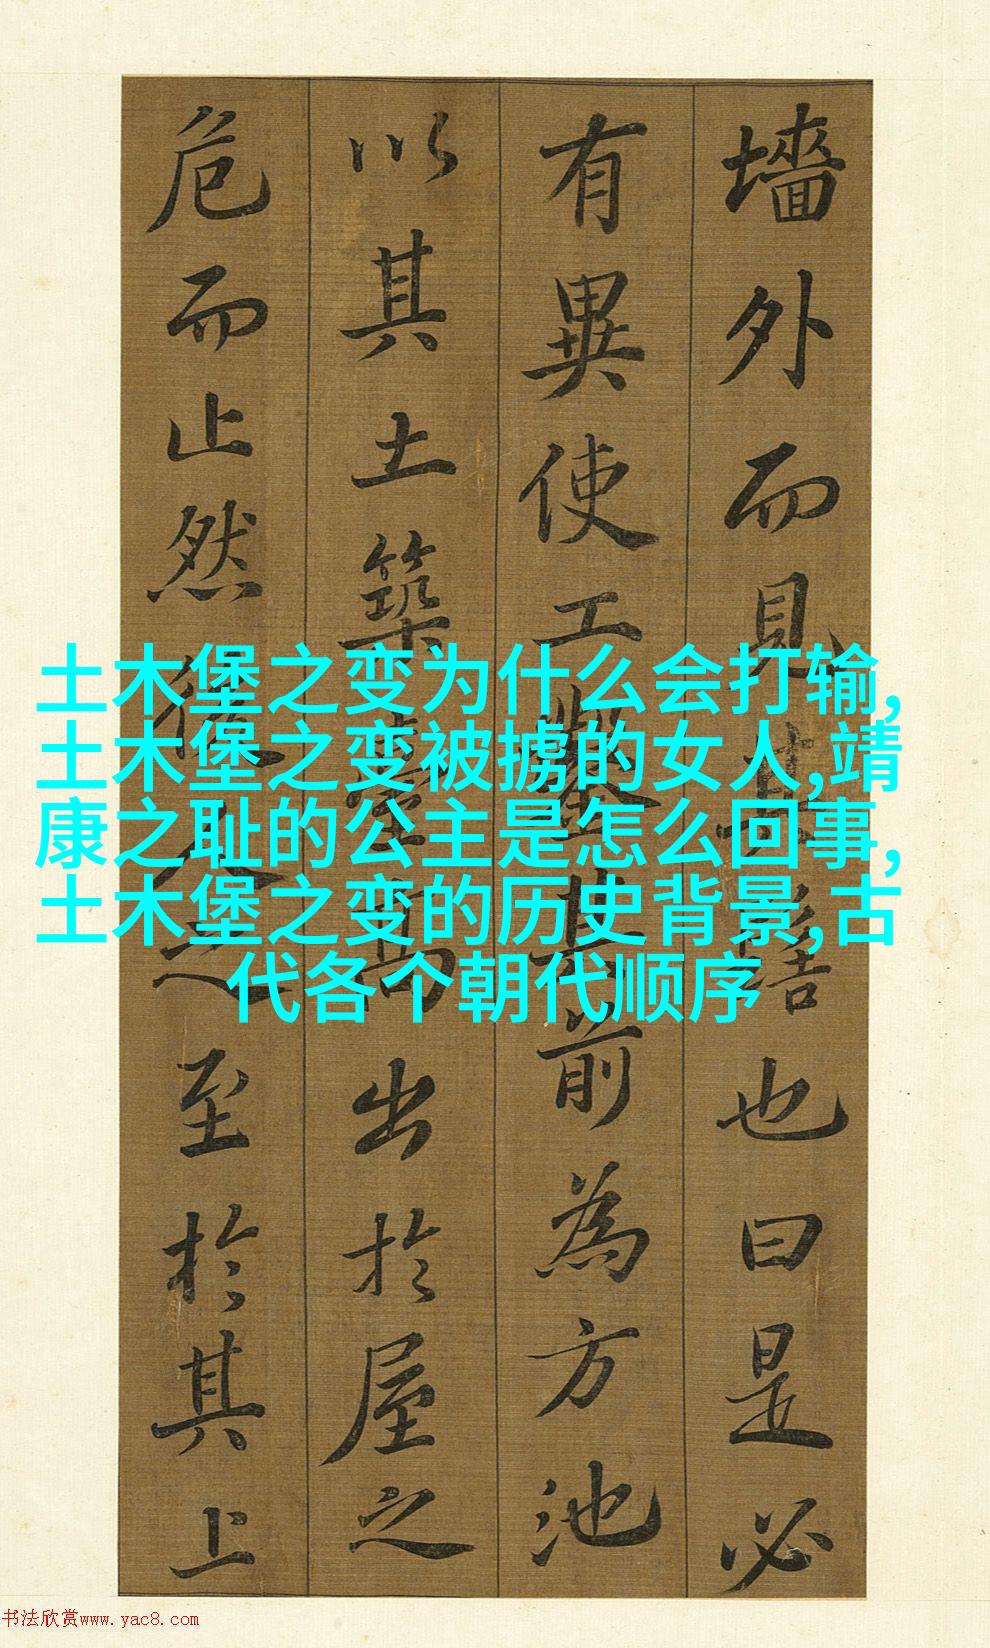 墻外而見其髻也曰是必
有異使工鑿其前為方池
以其土築臺高出於屋之
危而止然後人之至於其上
土木堡之变为什么会打输,
土木堡之变被掳的女人,靖
康之耻的公主是怎么回事,
土木堡之变的历史背景,古
代各个朝代顺序
书法欣赏www.yac8.com